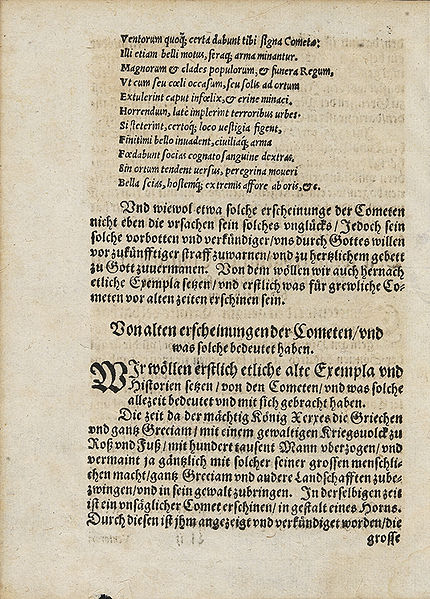 Ventorum quoq; certa dabunt tibi signa Cometæ:
Illi etiam belli motus, feraq; arma minantur.
Magnorum & clades populorum, & funera Regum,
Vt cum seu cœli occasum, seu solis ad ortum
Extulerint caput infœlix, & crine minaci,
Horrendum, latè implerint terroribus urbes.
Si steterint, certoq; loco uestigia figent,
Finitimi bello inuadent, ciuiliaq; arma
Fœdabunt socias cognato sanguine dextras.
Sin ortum tendent uersus, peregrina moueri
Bella scias, hostemq; extremis affore ab oris, &c.
Vnd wiewol etwa solche erscheinunge der Cometen
nicht eben die vrsachen sein solches vnglücks/ Jedoch sein
solche vorbotten vnd verkündiger/ vns durch Gottes willen
vor zukünfftiger straff zuwarnen/ vnd zu hertzlichem gebett
zu Gott zuuermanen. Von dem wöllen wir auch hernach
etliche Exempla setzen/ vnd erstlich was für grewliche Co-
meten vor alten zeiten erschinen sein.
Von alten erscheinungen der Cometen/ vnd
was solche bedeutet haben.
WJr wöllen erstlich etliche alte Exempla vnd
Historien setzen/ von den Cometen/ vnd was solche
allezeit bedeutet vnd mit sich gebracht haben.
Die zeit da der mächtig König Xerxes die Griechen
vnd gantz Greciam/ mit einem gewaltigen Kriegsuolck zu
Roß vnd Fuß/ mit hundert tausent Mann vberzogen/ vnd
vermaint ja gäntzlich mit solcher seiner grossen menschli-
chen macht/ gantz Greciam vnd andere Landschafften zube-
zwingen/ vnd in sein gewalt zubringen. In derselbigen zeit
ist ein vnsäglicher Comet erschinen/ in gestalt eines Horns.
Durch diesen ist jhm angezeigt vnd verkündiget worden/ die
grosse